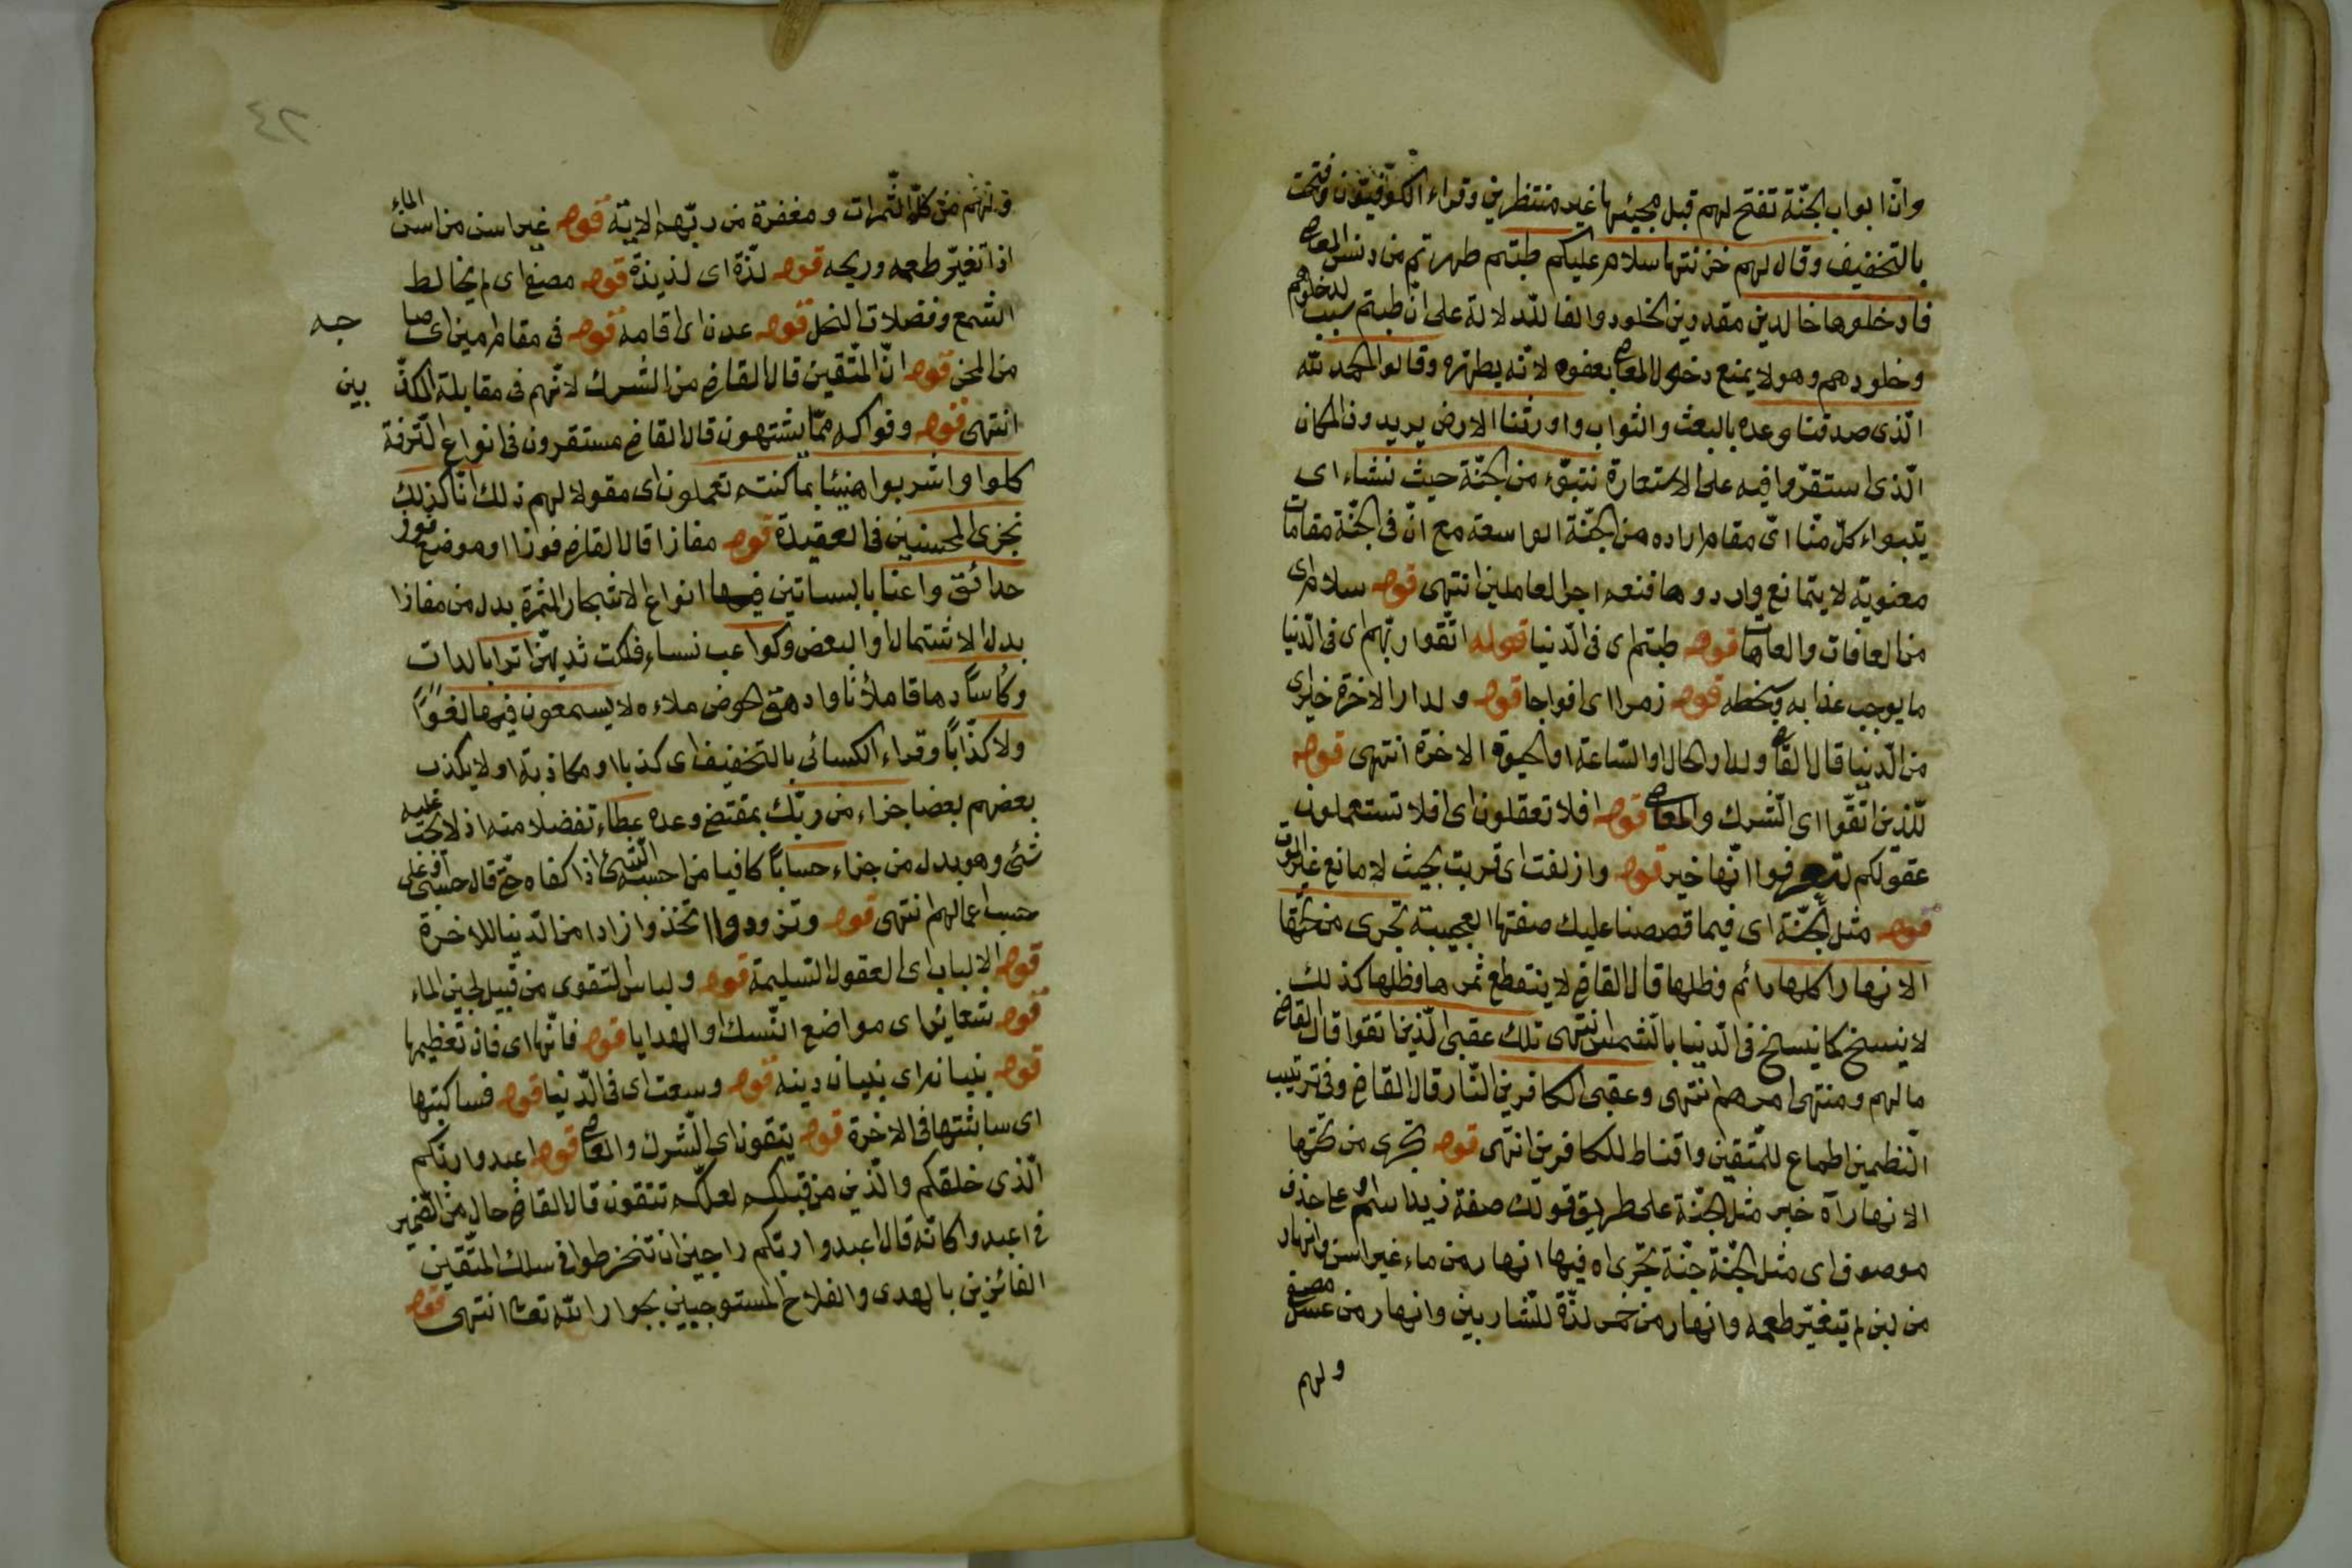 وانّ ابواب الجنّة تفتح لهم قبل مجيئها غير منتظرين وقراء الكوفيّون وفتحت
بالتخفيف وقال لهم خزنتها سلام عليكم طبتم طهرتم من دنس المعاصى
فادخلوها خالدين مقدرين الخلود والفا للدلالة على انّ طبتم سبب لدخولهم
وخلودهم وهو لا يمنع دخول المعاصى بعفوه لانّه يطهره وقالوا الحمد لله
الّذى صدقنا وعده بالبعث والثواب واورثنا الارض يريدون المكان
الّذى استقرّوا فيه على الاستعارة نتبوّء من الجنّة حيث نشاء اى
يتبواء كلّ منّا اىّ مقام اراده من الجنّة الواسعة مع انّ فى الجنّة مقامات
معنويّة لا يتمانع واردوها فنعم اجر العاملين انتهى قوله سلام اى
من العافات والعاهات قوله طبتم اى فى الدّنيا قوله اتّقوا ربّهم اى فى الدّنيا
ما يوجب عذابه وسخطه قوله زمرا اى افواجا قوله ولدار الاخرة خير اى
من الدّنيا قال القاضى ولدار الحال او السّاعة او الحيوة الاخرة انتهى قوله
للّذين اتّقوا اى الشّرك والمعاصى قوله افلا تعقلون اى افلا تستعملون
عقولكم لتعرفوا انّها خير قوله وازلفت اى قربت بحيث لا مانع غير الموت
قوله مثل الجنّة اى فيما قصصنا عليك صفتها العجيبة تجرى من تحتها
الانهار اكلها دائم وظلها قال القاضى لا ينقطع ثمرها وظلها كذلك
لا ينسخ كما ينسخ فى الدّنيا بالشّمس انتهى تلك عقبى الّذين اتقوا قال القاضى
مالهم ومنتهى امرهم انتهى وعقبى الكافرين النّار قال القاضى وفى ترتيب
النّظمين اطماع للمتّقين واقناط للكافرين انتهى قوله تجرى من تحتها
الانهار اه خبر مثل الجنّة على طريق قولك صفة زيد اسمر او على حذف
موصوف اى مثل الجنّة جنّة تجرى اه فيها انهار من ماء غير اسن وانهار
من لبن لم يتغيّر طعمه وانهار من خمر لذّة للشّاربين وانهار من عسل مصفى
ولهم
٤٢
ولهم من كلّ الثّمرات ومغفرة من ربّهم الاية قوله غير اسن من اسن الماء
اذا تغيّر طعمه وريحه قوله لذّة اى لذيذة قوله مصفى اى لم يخالط
الشّمع وفضلات النحل قوله عدن اى اقامه قوله فى مقام امين اى صا
جه
من المحن قوله انّ المتّقين قال القاضى من الشّرك لانّهم فى مقابلة المكذّ
بين
انتهى قوله وفواكه ممّا يشتهون قال القاضى مستقرون فى انواع التّرفة
كلوا واشربوا هنيئا بما كنتم تعملون اى مقولا لهم ذلك انّا كذلك
نجزى المحسنين فى العقيدة قوله مفازا قال القاضى فوزا او موضع فوز
حدائق واعنابا بساتين فيها انواع الاشجار المثمرة بدل من مفازا
بدل الاشتمال او البعض وكواعب نساء فلكت ثديهنّ اترابا لدات
وكاسًا دهاقا ملأنا وادهق الحوض ملاءه لا يسمعون فيها لغوًا
ولا كذّابًا وقراء الكسائى بالتخفيف اى كذبا او مكاذبة او لا يكذب
بعضهم بعضا جزاء من ربّك بمقتضى وعده عطاء تفضلا منه اذ لا تجب عليه
شئ وهو بدل من جزاء حسابًا كافيا من احسبه الشّئ اذا كفاه حتى قال حسبى او على
حسب اعمالهم انتهى قوله وتزودوا اتخذوا زادا من الدّنيا للاخرة
قوله الالباب اى العقول السليمة قوله ولباس التقوى من قبيل لجين الماء
قوله شعاير اى مواضع النّسك او الهدايا قوله فانّها اى فان تعظيمها
قوله بنيانه اى بنيان دينه قوله وسعت اى فى الدّنيا قوله فساكتبها
اى ساثبتها فى الاخرة قوله يتقون اى الشّرك والمعاصى قوله اعبدوا ربّكم
الّذى خلقكم والّذين من قبلكم لعلّكم تتقون قال القاضى حال من الضّمير
فى اعبدوا كانّه قال اعبدوا ربّكم راجين ان تنخرطوا فى سلك المتّقين
الفائزين بالهدى والفلاح المستوجبين بجوار الله تعالى انتهى قوله